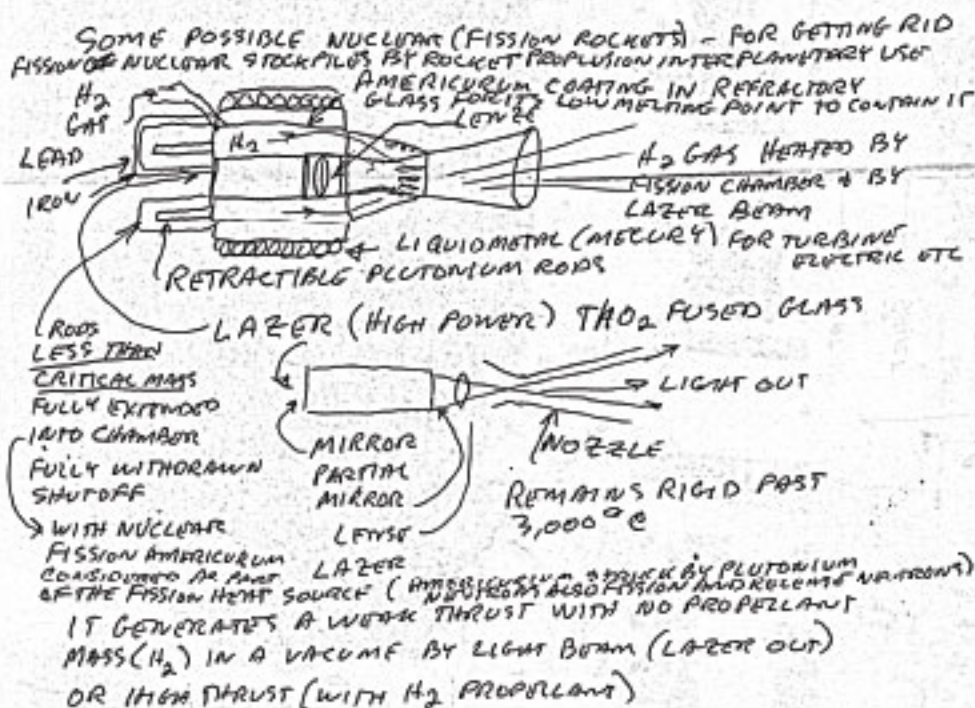 SOME POSSIBLE NUCLEAR (FISSION ROCKETS) - FOR GETTING RID
FISSION OF NUCLEAR STOCKPILES BY ROCKET PROPLUSION INTERPLANETARY USE
AMERICURUM COATING IN REFRACTORY
GLASS FOR ITZ LOW MELTING POINT TO CONTAIN IT
LENZE
H2
GAS
H2
LEAD
IRON
H2 GAS HEATED BY
FISSION CHAMBER & BY
LAZER BEAM
LIQUIDMETAL (MECURY) FOR TURBINE
ELECTRIC ETC
RETRACTIBLE PLUTONIUM RODS
LAZER (HIGH POWER) THO2 FUSED GLASS
RODS
LESS THAN
CRITICAL MASS
FULLY EXTENDED
INTO CHAMBER
FULLY WITHDRAWN
SHUTOFF
LIGHT OUT
NOZZLE
MIRROR
PARTIAL
MIRROR
LENSE
LAZER
REMAINS RIGID PAST
3,000° C
WITH NUCLEAR
FISSION AMERICURUM
CONSIDERED AS PART
OF THE FISSION HEAT SOURCE (AMERICURUM STRUCK BY PLUTONIUM
NEUTRONS ALSO FISSION AND RELEASE NEUTRONS)
IT GENERATES A WEAK THRUST WITH NO PROPELLANT
MASS (H2) IN A VACUME BY LIGHT BEAM (LAZER OUT)
OR HIGH THRUST (WITH H2 PROPELLANT)